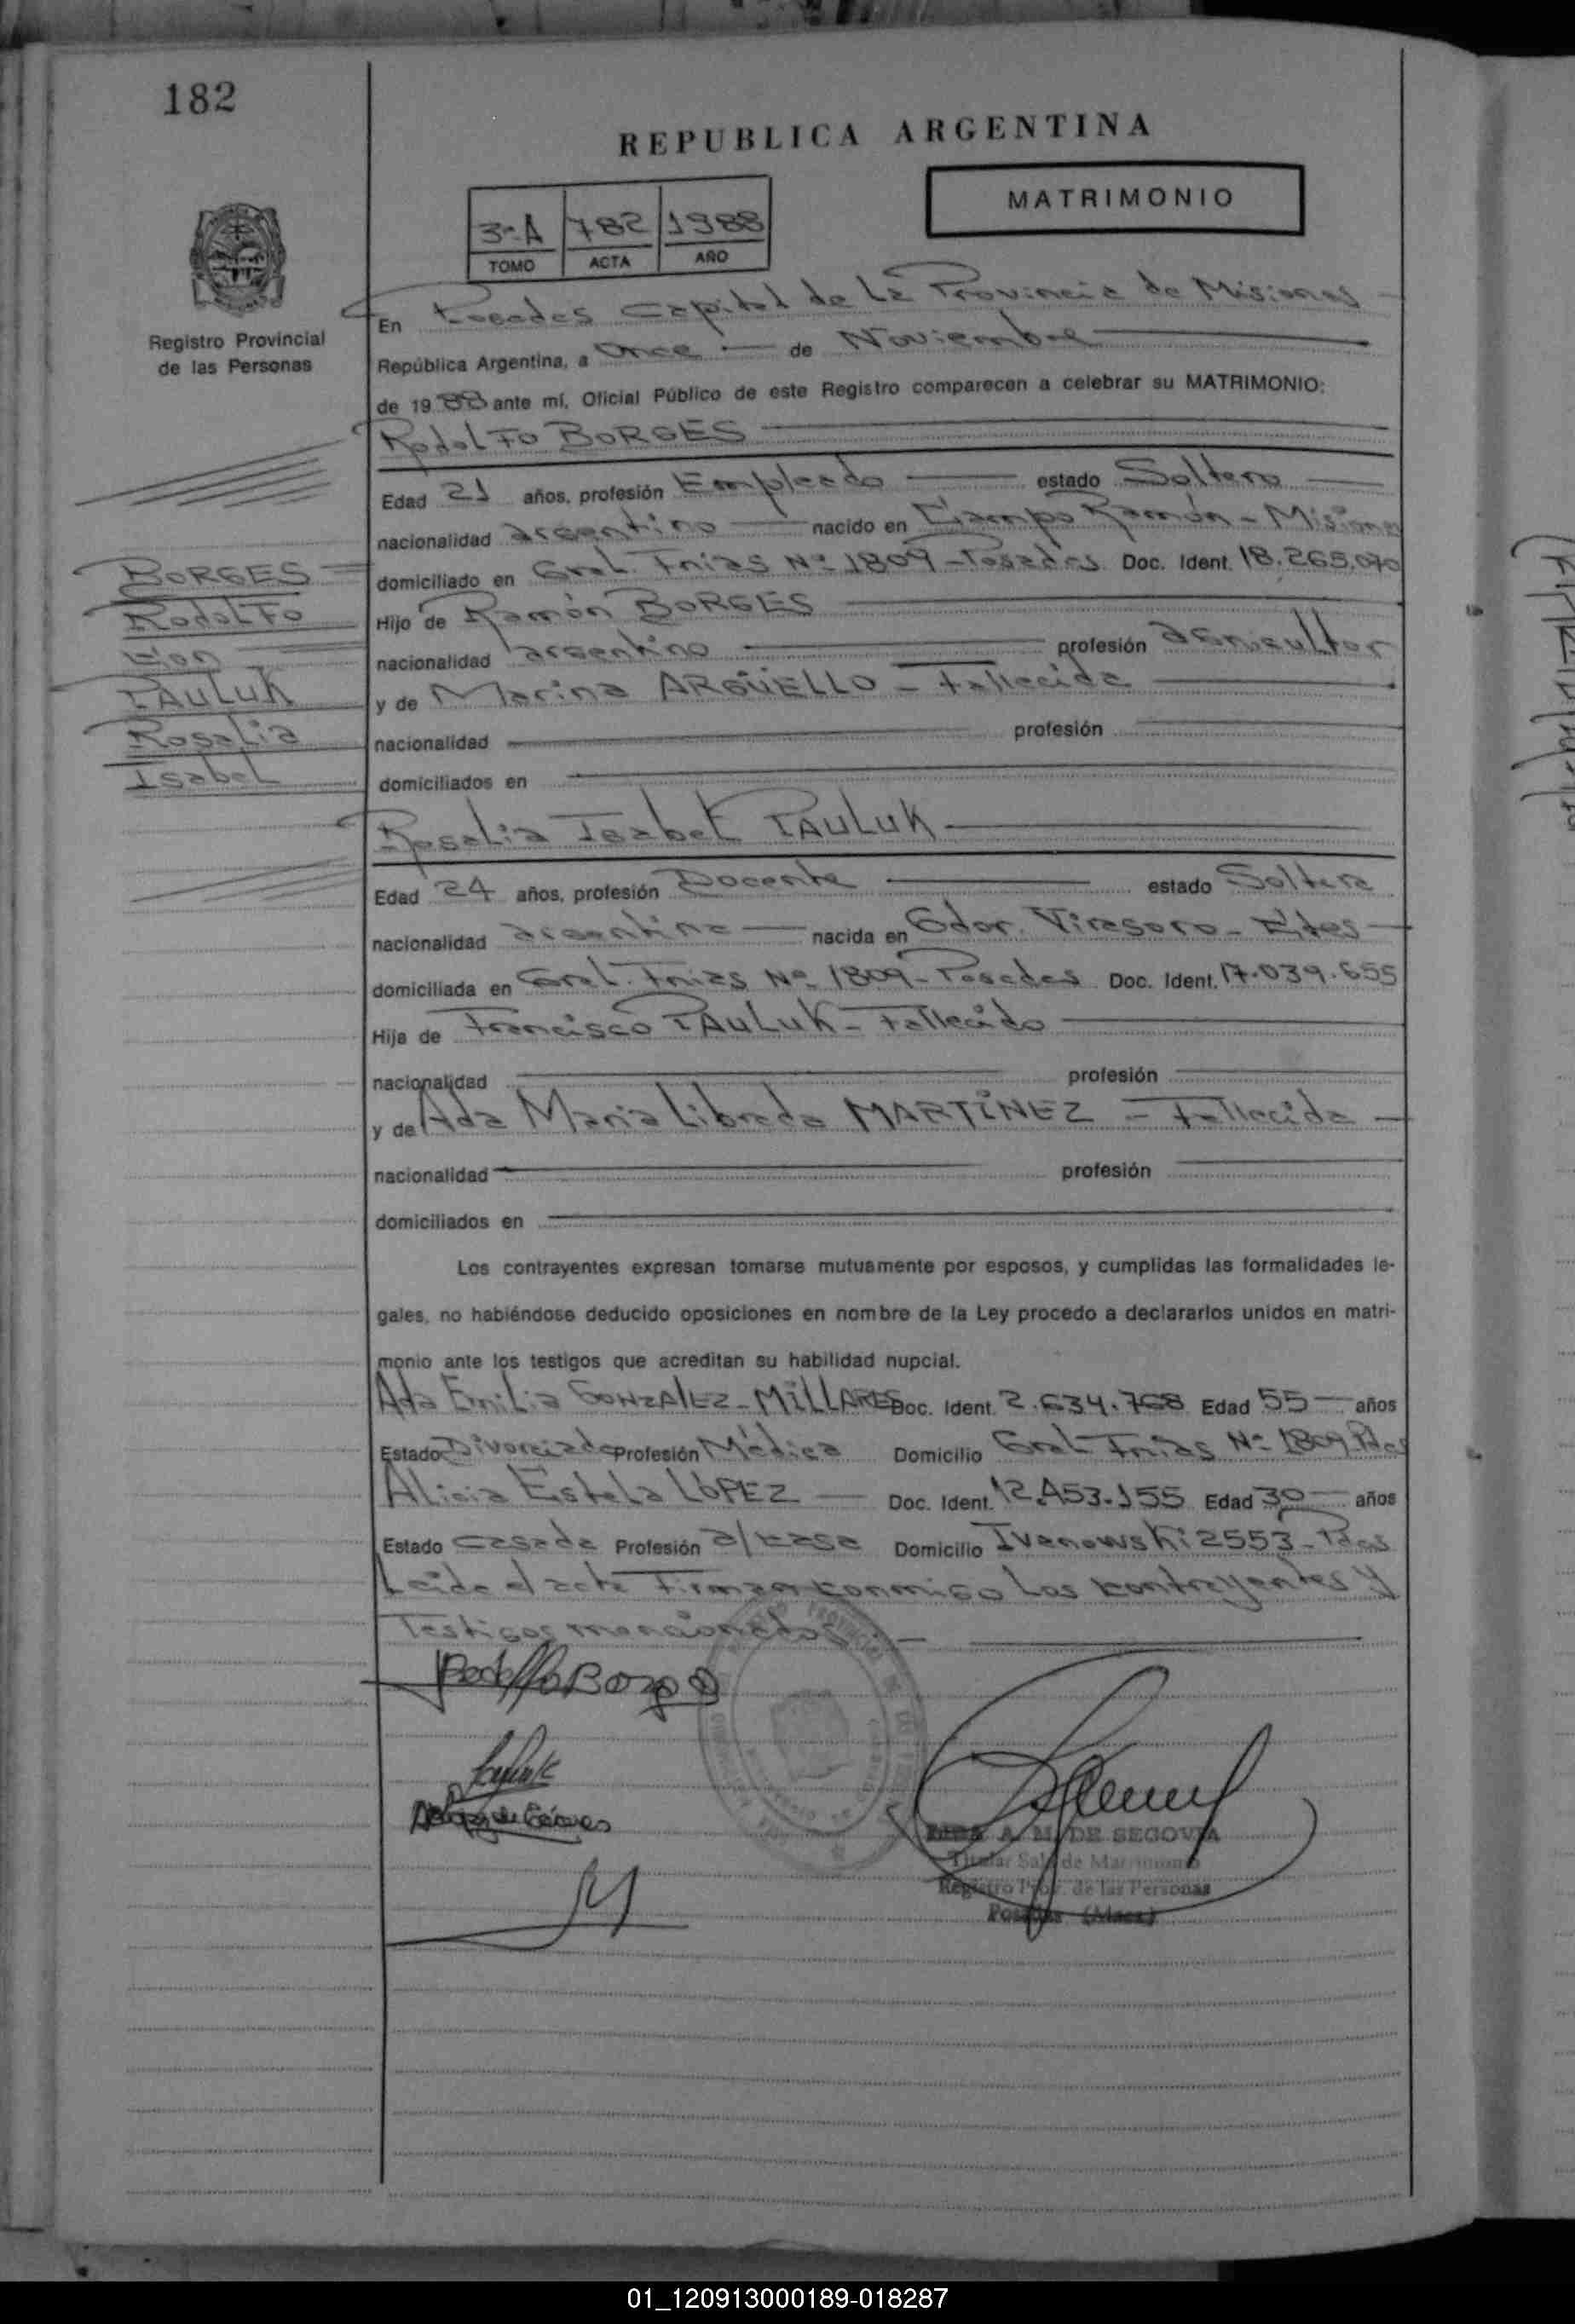 182
REPUBLICA ARGENTINA
MATRIMONIO
3ª A 782 1988
TOMO ACTA AÑO
Registro Provincial
de las Personas
En Posadas Capital de La Provincia de Misiones
República Argentina, a Once de Noviembre
de 1988 ante mí, Oficial Público de este Registro comparecen a celebrar su MATRIMONIO:
Rodolfo BORGES
Edad 21 años, profesión Empleado estado Soltero
nacionalidad argentino nacido en Campo Ramón - Misiones
domiciliado en Gral. Frias Nº 1809 - Posadas Doc. Ident. 18.265.070
Hijo de Ramón BORGES
nacionalidad argentino profesión agricultor
y de Marina ARGÜELLO - Fallecida
nacionalidad profesión
domiciliados en
BORGES
Rodolfo
con
PAULUK
Rosalia
Isabel
Rosalia Isabel PAULUK
Edad 24 años, profesión Docente estado Soltera
nacionalidad argentina nacida en Gdor. Virasoro - Ctes
domiciliada en Gral. Frias Nº 1809 - Posadas Doc. Ident. 17.039.655
Hija de Francisco PAULUK - Fallecido
nacionalidad profesión
y de Ada Maria Librada MARTÍNEZ - Fallecida
nacionalidad profesión
domiciliados en
Los contrayentes expresan tomarse mutuamente por esposos, y cumplidas las formalidades le-
gales, no habiéndose deducido oposiciones en nombre de la Ley procedo a declararlos unidos en matri-
monio ante los testigos que acreditan su habilidad nupcial.
Ada Emilia GONZALEZ - MILLARES Doc. Ident. 2.634.768 Edad 55 años
Estado Divorciada Profesión Médica Domicilio Gral. Frias Nº 1809 Pdas
Alicia Estela LÓPEZ Doc. Ident. 12.453.155 Edad 30 años
Estado Casada Profesión a/casa Domicilio Ivanowski 2553 - Pdas
Leida el acta firman conmigo los contrayentes y
Testigos mencionados.
Rodolfo Borges
A. M. DE SEGOVIA
Titular Sala de Matrimonio
Registro Prov. de las Personas
Posadas (Mnes.)
01_120913000189-018287